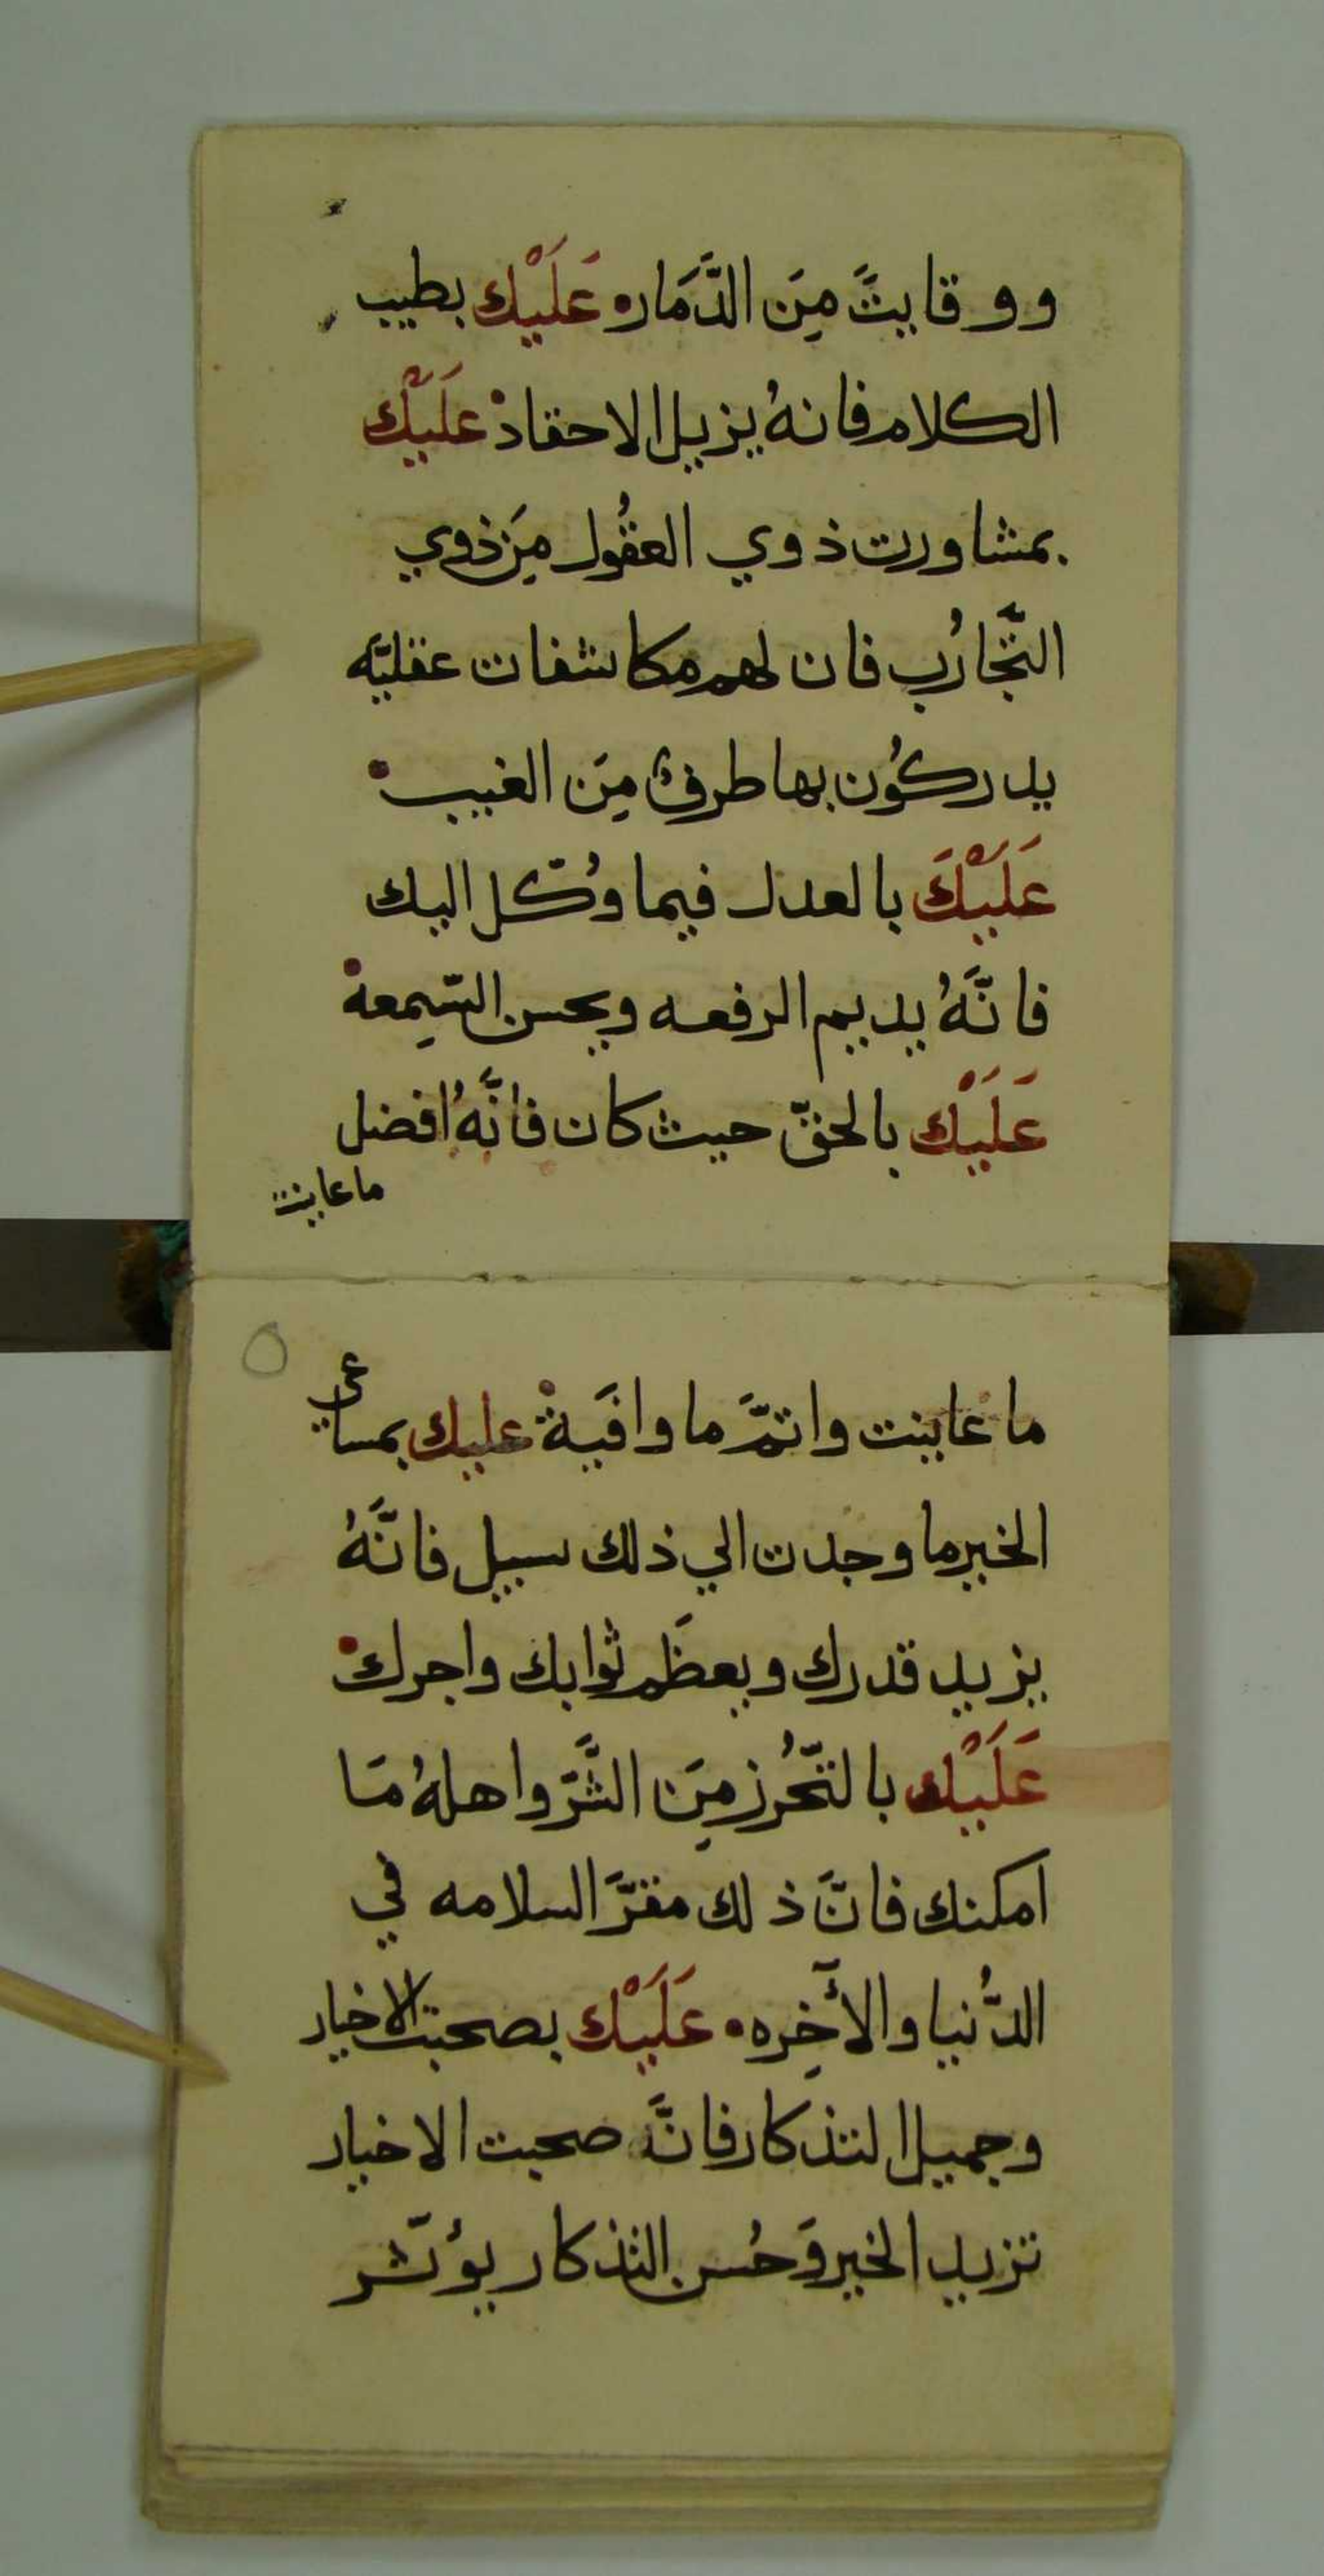 ووقايتً مِنَ الدَّمَار عَلَيْك بطيب
الكلام فانهُ يزيل الاحقاد عَلَيْك
بمشاورت ذوي العقُول مِنَ ذوي
التَّجَارُب فان لهم مكاشفات عقليَّه
يدركُون بها طرفٌ مِنَ الغيب
عَلَيْكَ بالعدل فيما وُكّل اليك
فانَّهُ يديم الرفعه ويحسن السّمِعه
عَلَيْك بالحقّ حيث كان فانَّهُ افضل
ما عاينت
٥
ما عاينت واتمَّ ما وافَية عليك بمساعي
الخير ما وجدت الي ذلك سبيل فانَّهُ
يزيد قدرك ويعظَم ثوابك واجرك
عَلَيْك بالتّحُرز مِنَ الشَّرّ واهلهُ مَا
امكنك فانَّ ذلك مقرَّ السلامه في
الدُّنيا والأخِره عَلَيْك بصحبت الاخيار
وجميل التذكار فانَّ صحبت الاخيار
تزيد الخير وَحُسن التذكار يؤثّر